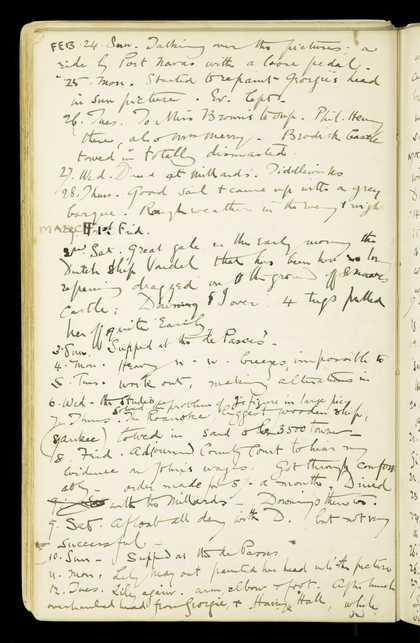 FEB 24. Sun. Talking over the pictures; a
ride by Port Navas with a loose pedal.
25. Mon. Started to repaint Georgie's head
in sun picture. Ev. Copts.
26. Tues. To Miss Brown's to sup. Phil. Henry
there, also Mrs Merry. Brodick Castle
towed in totally dismasted.
27. Wed. Dined at Millards. Tiddlewinks
28. Thurs. Good sail & came up with a grey
barque. Rough weather in the evening & night
MARCH 1st Frid.
2nd Sat. Great gale in the early morning the
Dutch Ship Vandel that has been here so long
repairing dragged on to the ground off St Mawes
Castle; Downing & I over. 4 tugs pulled
her off quite easily.
3. Sun. Supped at the de Pass's.
4. Mon. Heavy n. w. breezes, impossible to
5. Tues. work out, making alterations in
6. Wed. the studio problem of figure in large pic.
7. Thurs. The Roanoke biggest wooden ship,
(yankee) towed in said to be 3500 tons
8. Frid. Adjourned County Court to hear my
evidence on John's wages. Got through comfort
ably - order made for 5/- a month. Dined
with the Millards - Downings there too.
9. Sat. Afloat all day with D. but not very
successful -
10. Sun - Supped at the de Pass's
11. Mon. Lily May out painted her head into the picture
12. Tues. Lily again. arm elbow & foot. After lunch
overhauled head from Georgie & Harry Hall, while